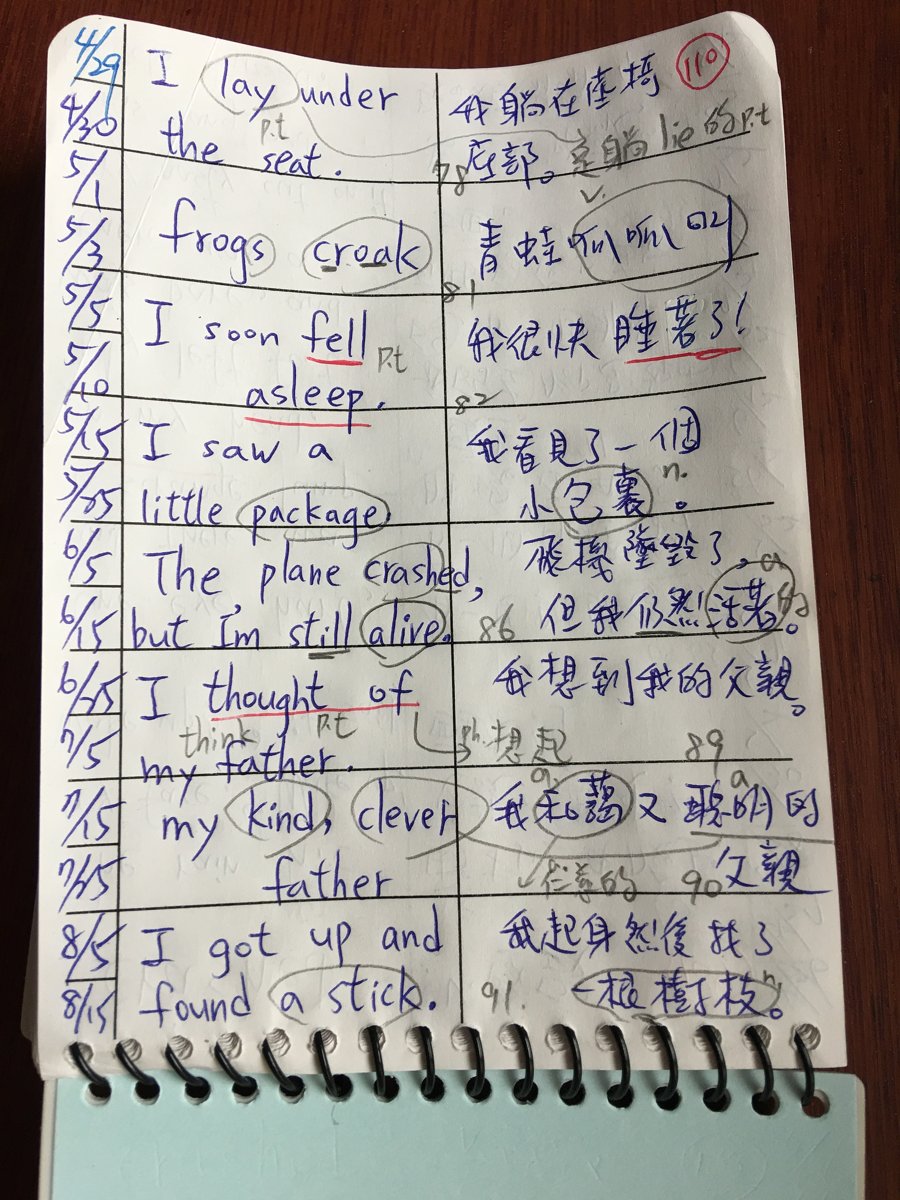 4/29
4/30
5/1
5/3
5/5
5/10
5/15
5/25
6/5
6/15
6/25
7/5
7/15
7/25
8/5
8/15
110
I lay under
p.t
the seat.
我躺在座椅
底部。是躺lie的p.t
78
v.
frogs croak
青蛙呱呱叫
81
I soon fell
p.t
asleep.
我很快睡著了!
82
I saw a
little package.
我看見了一個
n.
小包裏。
The plane crashed,
but I'm still alive.
飛機墜毀了,
a
86 但我仍然活著的。
I thought of
think p.t
my father.
我想到我的父親。
ph.想起 89
my kind, clever
father
a. a
我和藹又聰明的
父親
仁慈的 90
I got up and
found a stick.
我起身然後找了
n.
91. 一根樹枝。